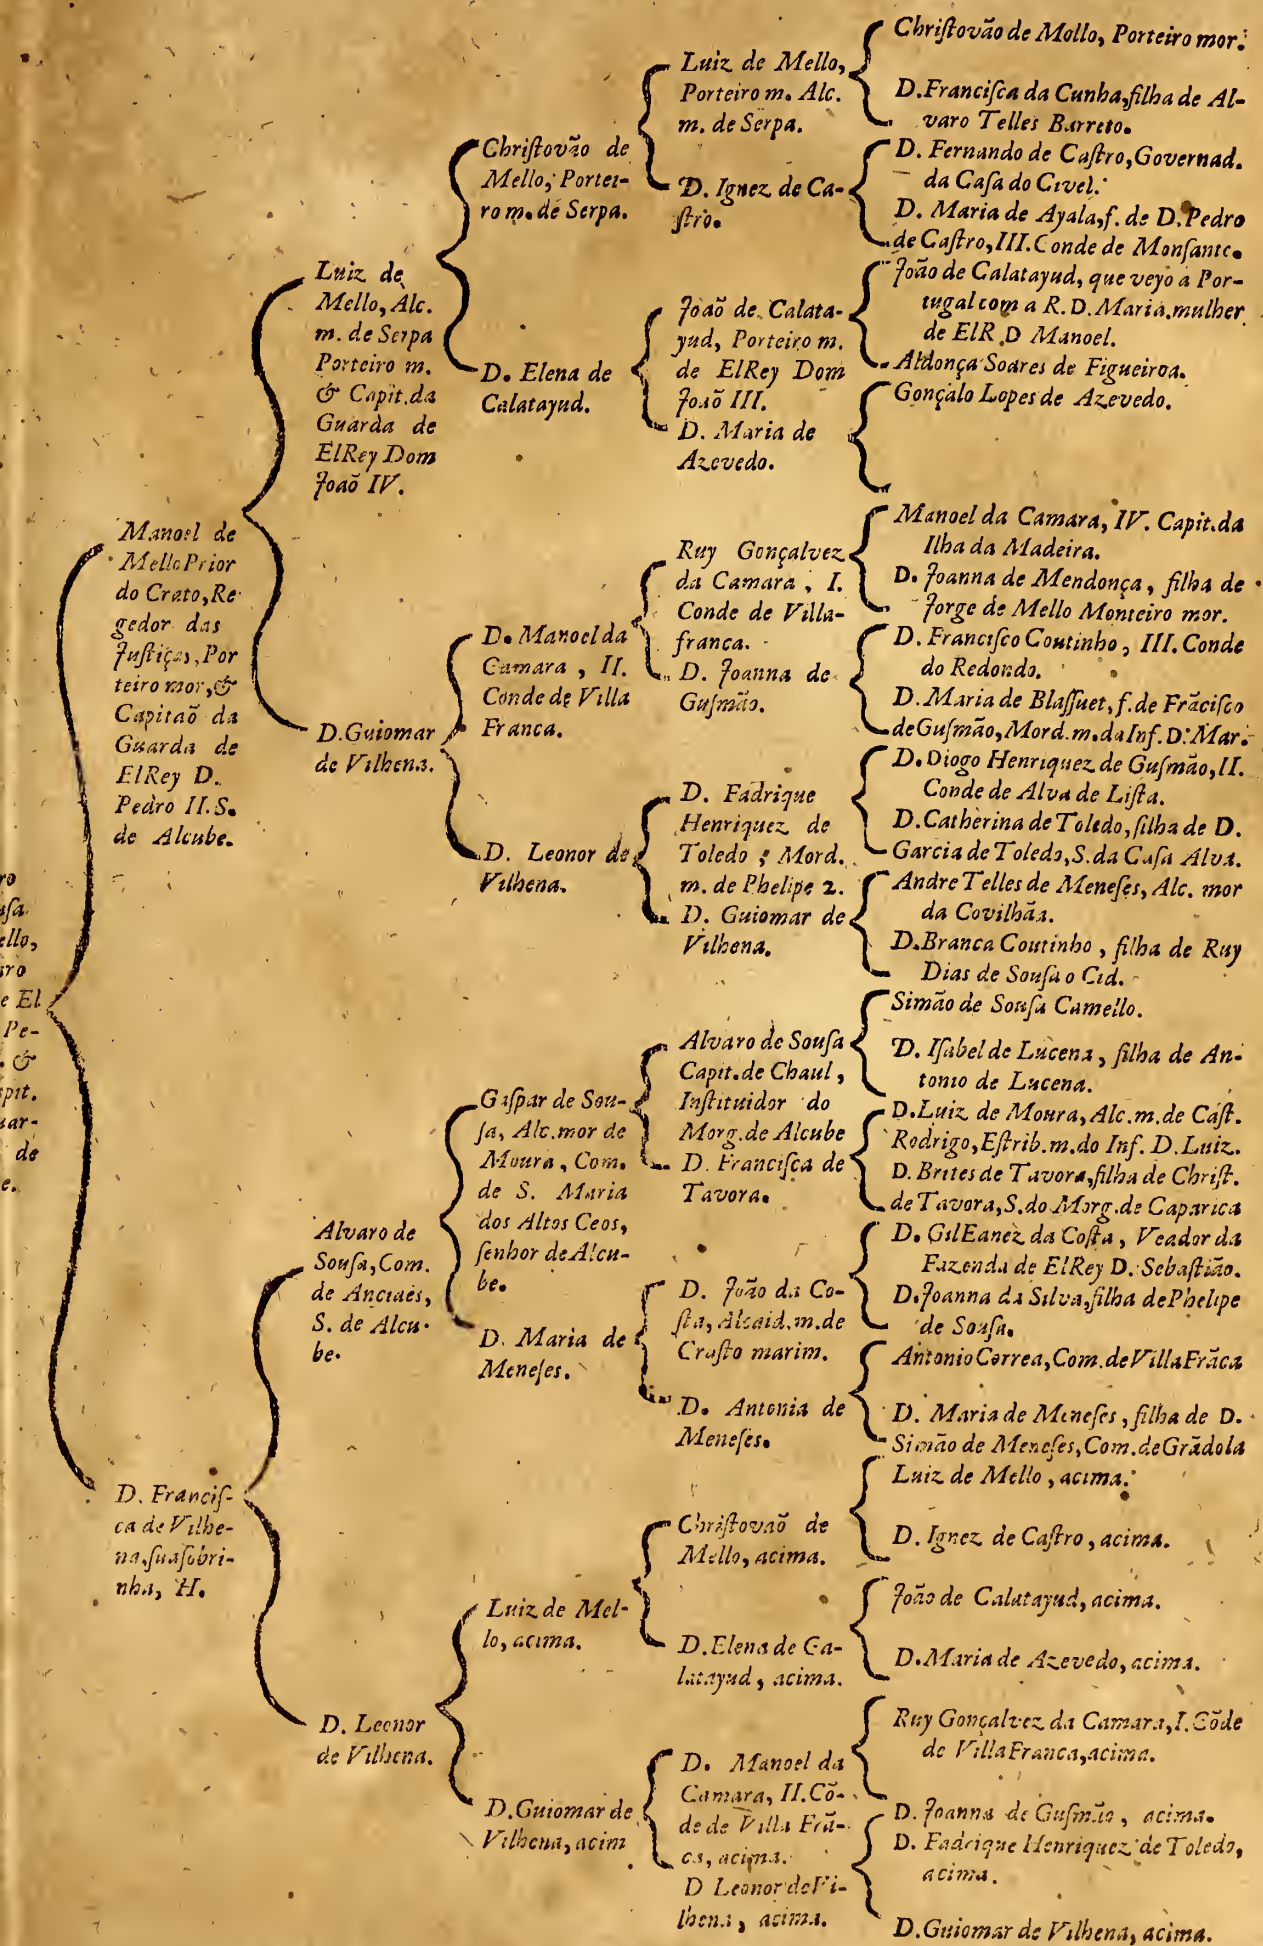 ro
usa
ello,
iro
e El
Pe-
. &
pit.
uar-
de
e.
Manoel de
Mello Prior
do Crato, Re-
gedor das
Juſtiças, Por
teiro mor, &
Capitaõ da
Guarda de
ElRey D.
Pedro II. S.
de Alcube.
D. Franciſ-
ca de Vilhe-
na, ſua ſobri-
nha, H.
Luiz de
Mello, Alc.
m. de Serpa
Porteiro m.
& Capit. da
Guarda de
ElRey Dom
Joaõ IV.
D. Guiomar
de Vilhena.
Alvaro de
Souſa, Com.
de Anciaẽs,
S. de Alcu-
be.
D. Leonor
de Vilhena.
Chriſtovão de
Mello, Portei-
ro m. de Serpa.
D. Elena de
Calatayud.
D. Manoel da
Camara, II.
Conde de Villa
Franca.
D. Leonor de
Vilhena.
Gaſpar de Sou-
ſa, Alc. mor de
Moura, Com.
de S. Maria
dos Altos Ceos,
ſenhor de Alcu-
be.
D. Maria de
Meneſes.
Luiz de Mel-
lo, acima.
D. Guiomar de
Vilhena, acim
Luiz de Mello,
Porteiro m. Alc.
m. de Serpa.
D. Ignez de Ca-
ſtro.
Joaõ de Calata-
yud, Porteiro m.
de ElRey Dom
Joaõ III.
D. Maria de
Azevedo.
Ruy Gonçalvez
da Camara, I.
Conde de Villa-
franca.
D. Joanna de
Guſmão.
D. Fadrique
Henriquez de
Toledo, Mord.
m. de Phelipe 2.
D. Guiomar de
Vilhena.
Alvaro de Souſa
Capit. de Chaul,
Inſtituidor do
Morg. de Alcube
D. Franciſca de
Tavora.
D. João da Co-
ſta, Alcaid. m. de
Craſto marim.
D. Antonia de
Meneſes.
Chriſtovaõ de
Mello, acima.
D. Elena de Ca-
latayud, acima.
D. Manoel da
Camara, II. Cõ-
de de Villa Frã-
ca, acima.
D Leonor de Vi-
lhena, acima.
Chriſtovão de Mollo, Porteiro mor.
D. Franciſca da Cunha, filha de Al-
varo Telles Barreto.
D. Fernando de Caſtro, Governad.
da Caſa do Civel.
D. Maria de Ayala, f. de D. Pedro
de Caſtro, III. Conde de Monſanto.
João de Calatayud, que veyo a Por-
tugal com a R. D. Maria, mulher
de ElR. D Manoel.
Aldonça Soares de Figueiroa.
Gonçalo Lopes de Azevedo.
Manoel da Camara, IV. Capit. da
Ilha da Madeira.
D. Joanna de Mendonça, filha de
Jorge de Mello Monteiro mor.
D. Franciſco Coutinho, III. Conde
do Redondo.
D. Maria de Blaſſuet, f. de Frãciſco
de Guſmão, Mord. m. da Inf. D. Mar.
D. Diogo Henriquez de Guſmão, II.
Conde de Alva de Liſta.
D. Catherina de Toledo, filha de D.
Garcia de Toledo, S. da Caſa Alva.
Andre Telles de Meneſes, Alc. mor
da Covilhãa.
D. Branca Coutinho, filha de Ruy
Dias de Souſa o Cid.
Simão de Souſa Camello.
D. Iſabel de Lucena, filha de An-
tonio de Lucena.
D. Luiz de Moura, Alc. m. de Caſt.
Rodrigo, Eſtrib. m. do Inf. D. Luiz.
D. Brites de Tavora, filha de Chriſt.
de Tavora, S. do Morg. de Caparica
D. Gil Eanez da Coſta, Veador da
Fazenda de ElRey D. Sebaſtião.
D. Joanna da Silva, filha de Phelipe
de Souſa.
Antonio Correa, Com. de Villa Frãca
D. Maria de Meneſes, filha de D.
Simão de Meneſes, Com. de Grãdola
Luiz de Mello, acima.
D. Ignez de Caſtro, acima.
João de Calatayud, acima.
D. Maria de Azevedo, acima.
Ruy Gonçalvez da Camara, I. Cõde
de Villa Franca, acima.
D. Joanna de Guſmão, acima.
D. Fadrique Henriquez de Toledo,
acima.
D. Guiomar de Vilhena, acima.